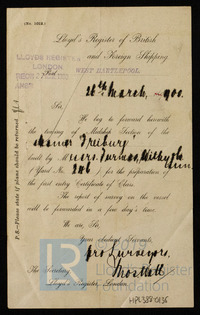 (No. 1053.)
Lloyd's Register of British
and Foreign Shipping
LLOYDS REGISTER
LONDON
WEST HARTLEPOOL,
26th March, 1900.
Sir,
We beg to forward herewith
the tracing of Midship Section of the
Steamer Freiburg
built by Messrs. Furness, Withy & Co
(Yard No. 246) for the preparation of
the first entry Certificate of Class.
The report of survey on this vessel
will be forwarded in a few days time.
We are, Sir,
Your obedient Servants,
pro Surveyors,
The Secretary
Lloyd's Register, London.
P.S.—Please state if plans should be returned.
Lloyd's Register
Foundation